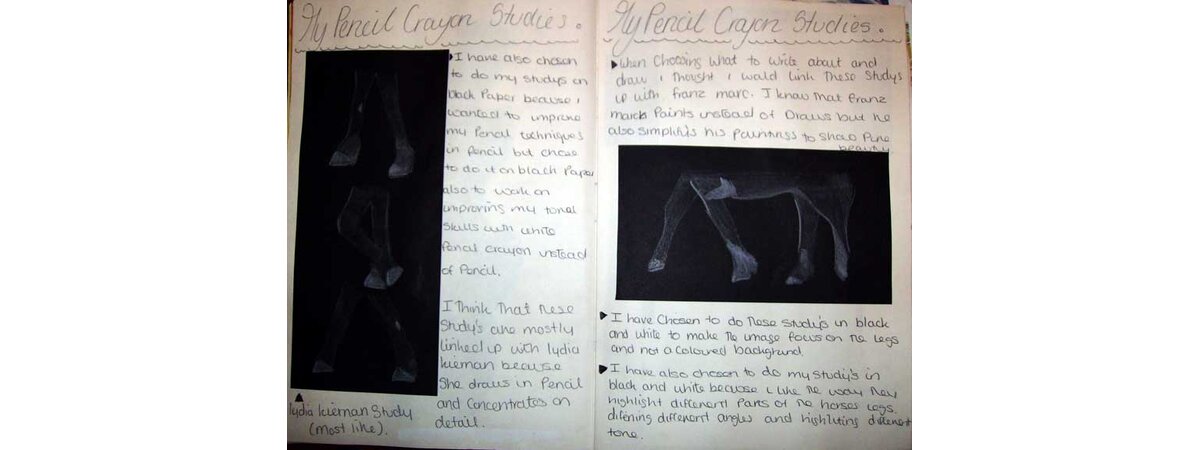 My Pencil Crayon Studies.
I have also chosen
to do my studys on
black Paper because i
wanted to improve
my Pencil techniques
in Pencil but chose
to do it on black Paper
also to work on
improving my tonal
skills with white
Pencil crayon instead
of Pencil.
I Think That These
Study's are mostly
linked up with lydia
kiernan because
She draws in Pencil
and Concentrates on
detail.
lydia kiernan Study
(most like).
My Pencil Crayon Studies.
When Choosing what to write about and
draw i thought i would link These Studys
up with franz marc. I know that franz
march Paints instead of Draws but he
also simplifys his paintings to show Pure
beauty.
I have Chosen to do These study's in black
and white to make The image focus on The legs
and not a coloured background.
I have also chosen to do my study's in
black and white because i like The way They
highlight different Parts of The horses legs.
difining different angles and highliting different
tone.